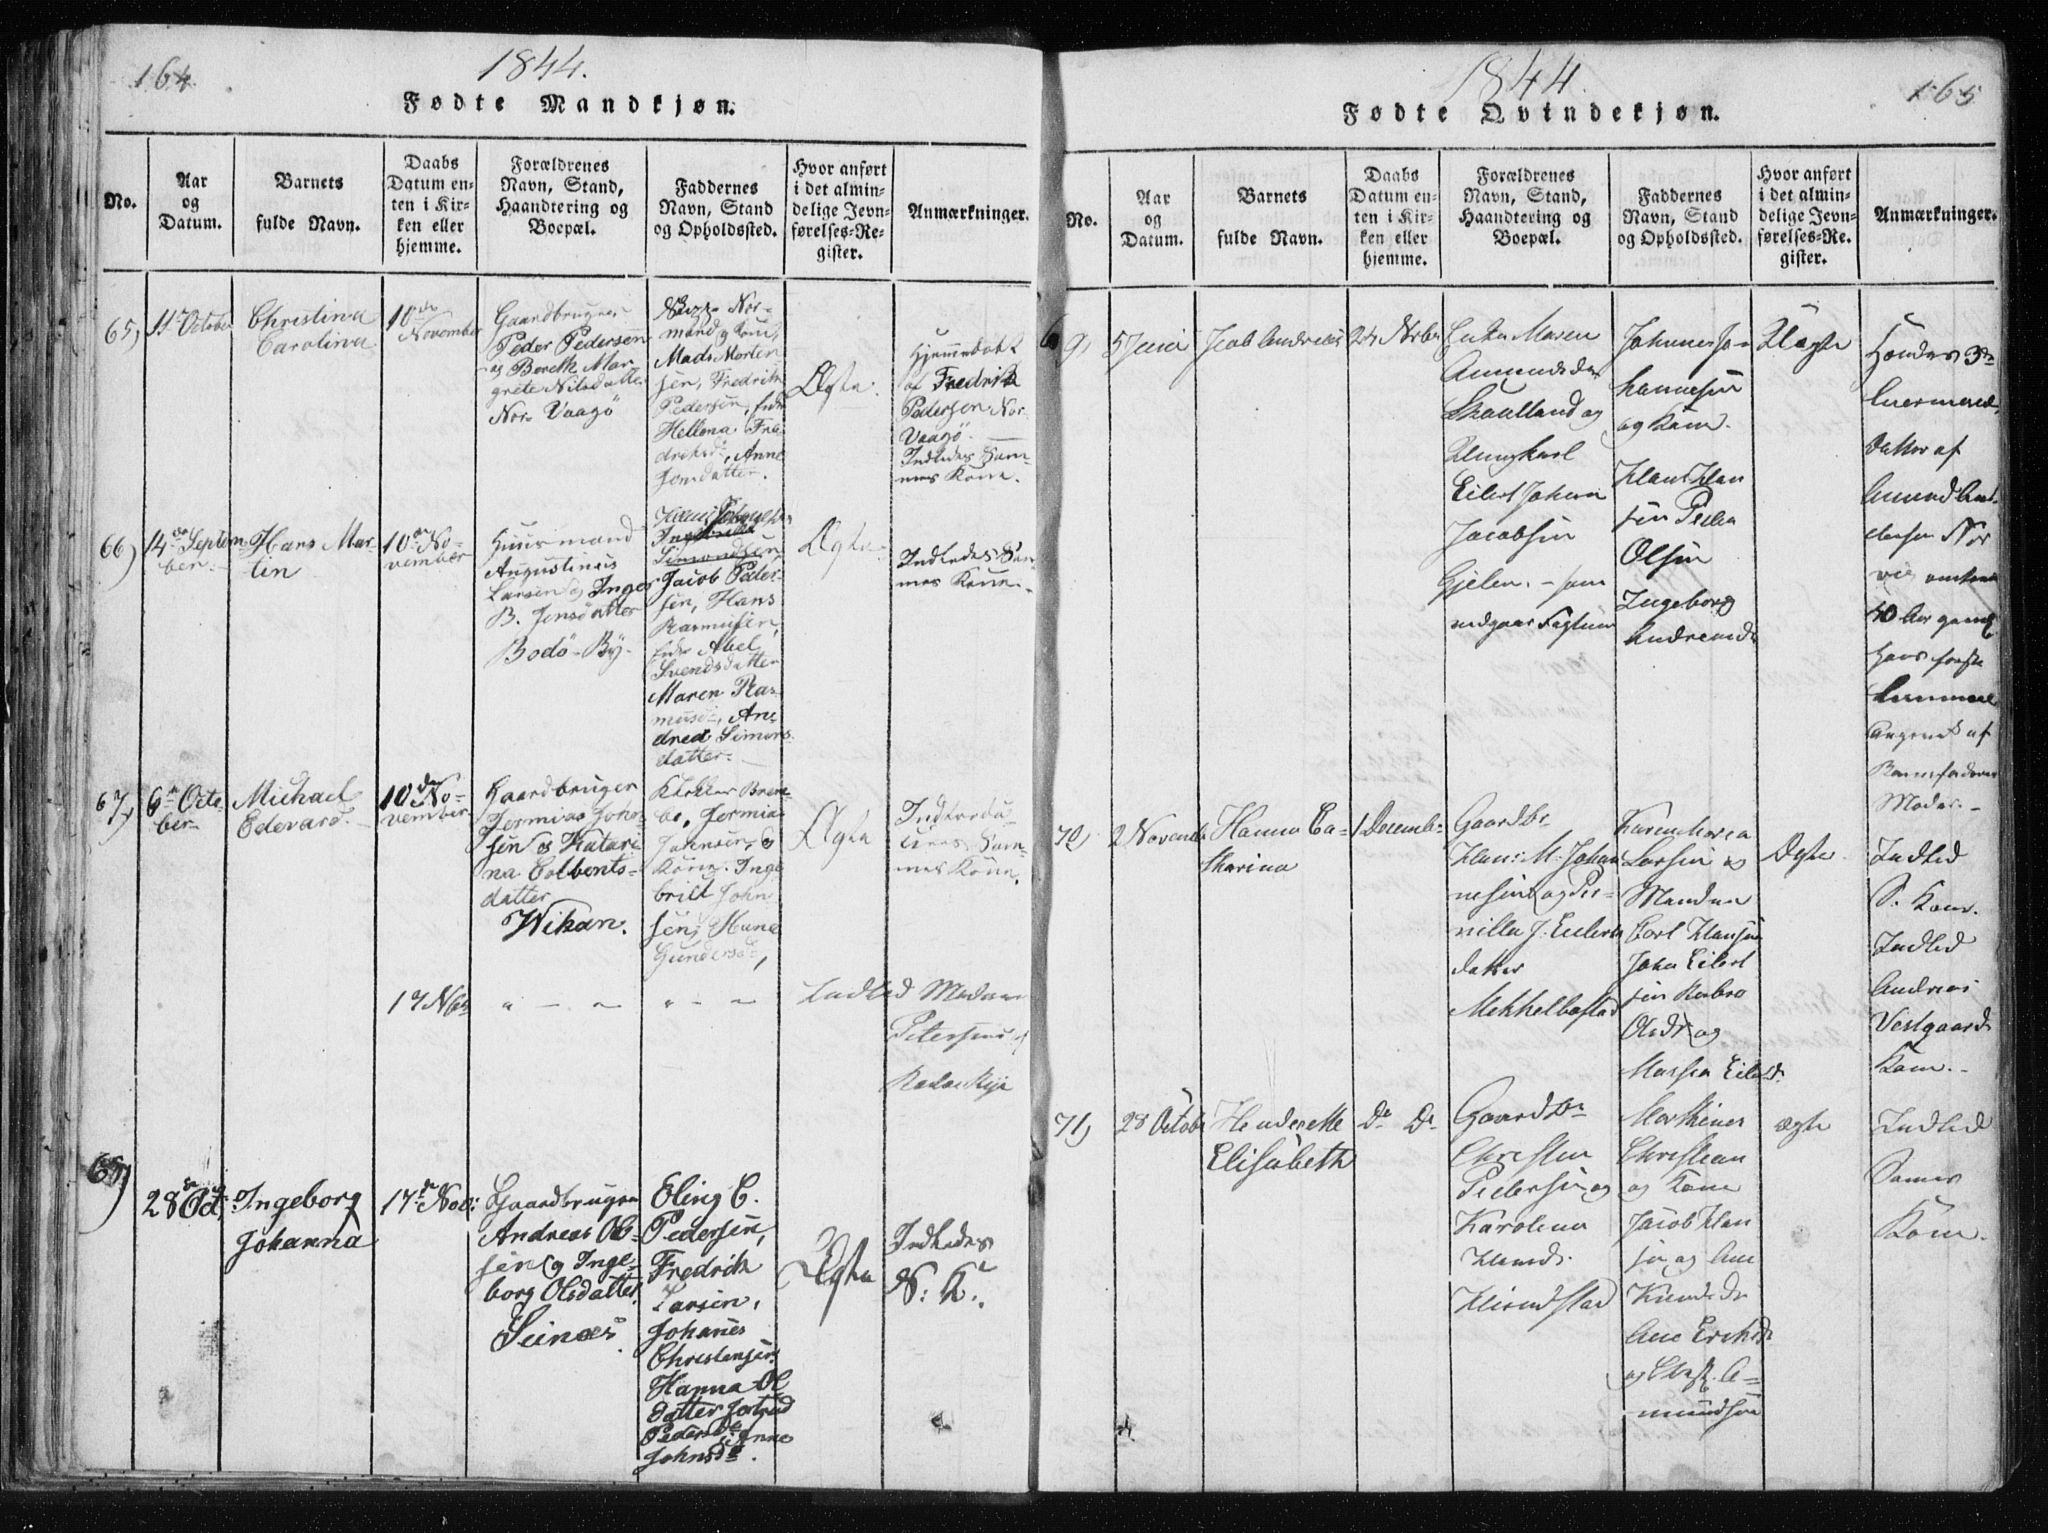 164.
1844.
Fødte Mandkjøn.
No.
Aar
og
Datum.
Barnets
fulde Navn.
Daabs
Datum en-
ten i Kir-
ken eller
hjemme.
Forældrenes
Navn, Stand,
Haandtering og
Boepæl.
Faddernes
Navn, Stand
og Opholdssted.
Hvor anført
i det almin-
delige Jevn-
førelses-Re-
gister.
Anmærkninger.
65)
11te October
Christina
Carolina
10de
November
Gaardbruger
Peder Pedersen
og Berethe Mar-
grete Nilsdatter
Nor- Vaagö
Nor-
mand og Kone,
Mads Morten
sen, Fredrik
Pedersen,
Hellena Fre
driksdr, Anne
Jensdatter.
Ægte.
Hjemmedøbt
af Fredrik
Pedersen Nor.
Vaagö.
Indledes Sam-
mes Kone.
66)
14de Septem-
ber.
Hans Mar-
tin
10de No-
vember
Huusmand
Augustinus
Larsen og Inger
B. Jensdatter
Bodö-By-
Simondsen
Jacob Peder-
sen, Hans
Rasmusen,
Abel
Svendsdatter
Maren Ras-
musd, An-
drea Simons-
datter.
Ægte
Indledes Sam-
mes Kone.
67)
6te Octo-
ber
Michael
Edevard.
10de No-
vember
Gaardbruger
Jermias Joha-
sen og Katari-
na Colbents-
datter
Wikan.
Jermias
Johnsen, og
Kone. Inge
brict John
sen, Hane
Gundersd,
Ægte
Introdu-
ceres Sam-
mes Kone.
17 Nbr
" - -
" - -
Indled Madame
Petersens
68)
28de Oct.
Ingeborg
Johanna
17de Nov:
Gaardbruger
Andreas Ol-
sen og Inge-
borg Olsdatter
Seinæs.
Eling C.
Pedersen,
Fredrik
Larsen,
Johanes
Christensen
Hanna Ol
datter Jertrud
Pedersdr
Anne
Johnsdr.
Ægte
Indledes
S. K.
1844.
165
Fødte Qvindekjøn.
No.
Aar
og
Datum.
Barnets
fulde Navn.
Daabs
Datum en-
ten i Kir-
ken eller
hjemme.
Forældrenes
Navn, Stand,
Haandtering og
Boepæl.
Faddernes
Navn, Stand
og Opholdssted.
Hvor anført
i det almin-
delige Jevn-
førelses-Re-
gister.
Anmærkninger.
69)
5 Juni
Jcob Andreas
24 Novbr
Enke Maren
Amundsdr
Skaulland og
Ungkarl
Eilert Johan
Jacobsen
Gjelen. - som
Johannes Jo-
hannesen
og Kone.
Klaus Klau
sen Peder
Olsen
Ingeborg
Andreasdr
Uægte
Hendes 3de
Leiermaal,
datter af
Amund An-
dersen Nor
vig omtrent
40 Aar gamel
Hans første
Leiermaal
Angivet af
Barnefaderens
Moder.-
70)
2 Novemb
Hanna Ca-
tharina
1 Decembr
Gaardbr
Hans M. Johan
nesen og Per-
nilla J. Eilerts
datter
Mekkelbostad
Karen Maria
Larsen og
Manden
Carl Klausen
Johan Eilert
sen Rebro
Olsdr og
Massia Eilertd.
Ægte
Indled
S. Kone.
Indled
Andreas
Vestgaards
Kone.-
71)
28 Octob
Henderette
Elisabeth
Do Do
Gaardbr
Christen
Pedersen og
Karolina
Klausd.
Mathias
Christian
og Kone
Jacob Klau
sen og Ane
Knudsdr
Ane Eriksdr
og Christ. A-
mundsen
ægte
Indled
Sames
Kone.